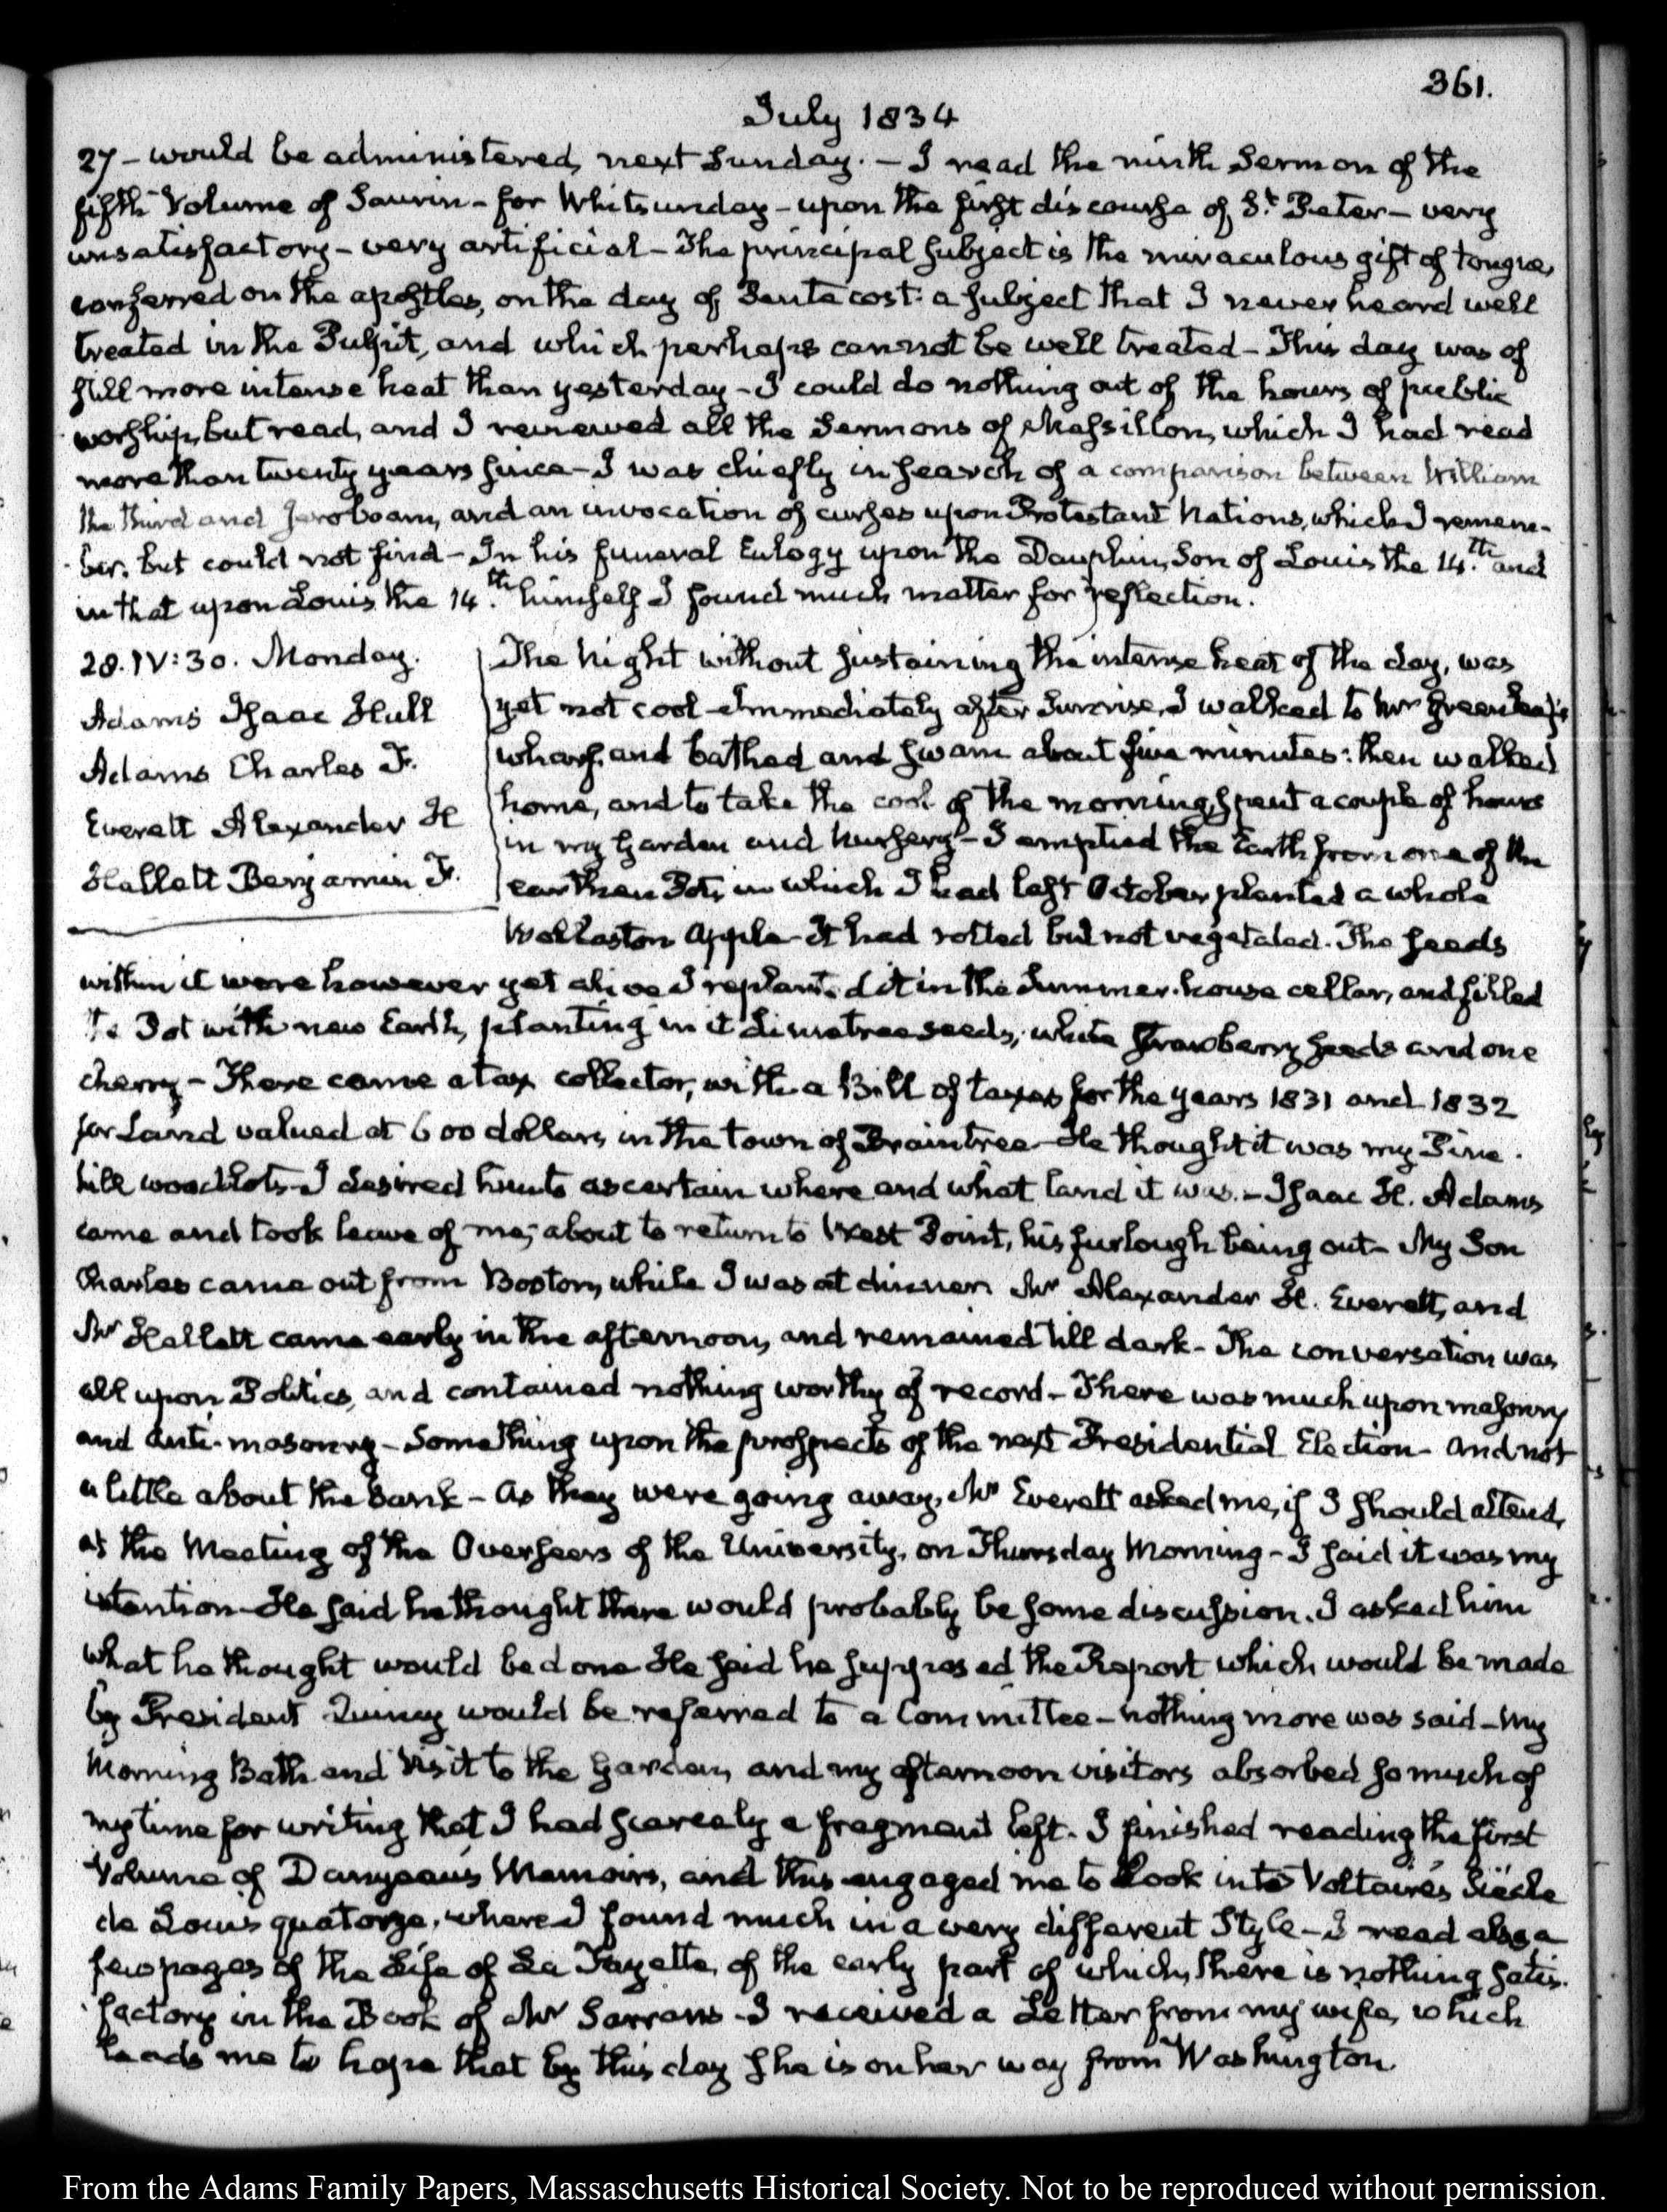 361.
July 1834
27 - would be administered, next Sunday. - I read the ninth Sermon of the
fifth Volume of Saurin - for Whitsunday - upon the first discourse of St. Peter - very
unsatisfactory - very artificial - The principal subject is the miraculous gift of tongues,
conferred on the apostles, on the day of Pentecost: a subject that I never heard well
treated in the Pulpit, and which perhaps cannot be well treated - This day was of
still more intense heat than yesterday - I could do nothing out of the hours of public
worship, but read, and I reviewed all the Sermons of Massillon, which I had read
more than twenty years since - I was chiefly in search of a comparison between William
the third and Jeroboam, and an invocation of curses upon Protestant Nations, which I remem-
ber, but could not find - In his funeral Eulogy upon the Dauphin, Son of Louis the 14.th and
in that upon Louis the 14.th himself I found much matter for reflection.
28. IV:30. Monday.
Adams Isaac Hull
Adams Charles F.
Everett Alexander H
Hallett Benjamin F.
The Night without sustaining the intense heat of the day, was
yet not cool - Immediately after Sunrise, I walked to Mr Greenleaf's
wharf, and bathed and swam about five minutes: then walked
home, and to take the cool of the morning, spent a couple of hours
in my Garden and Nursery - I emptied the Earth from one of the
earthen Pots, in which I had last October planted a whole
Wollaston Apple - It had rotted but not vegetated. The seeds
within it were however yet alive I replanted it in the Summer-house cellar, and filled
the Pot with new Earth, planting in it Limetree seeds, white Strawberry seeds and one
cherry - There came a tax collector, with a Bill of taxes for the years 1831 and 1832
for Land valued at 600 dollars, in the town of Braintree - He thought it was my Pine-
hill woodlots - I desired him to ascertain where and what land it was. - Isaac H. Adams
came and took leave of me; about to return to West Point, his furlough being out - My Son
Charles came out from Boston, while I was at dinner. Mr Alexander H. Everett, and
Mr Hallett came early in the afternoon, and remained till dark - The conversation was
all upon Politics, and contained nothing worthy of record - There was much upon masonry
and anti-masonry - Something upon the prospects of the next Presidential Election - and not
a little about the bank - As they were going away, Mr Everett asked me, if I should attend,
at the Meeting of the Overseers of the University, on Thursday Morning - I said it was my
intention - He said he thought there would probably be some discussion. I asked him
what he thought would be done He said he supposed the Report which would be made
by President Quincy would be referred to a Committee - nothing more was said - My
Morning Bath and visit to the Garden, and my afternoon visitors absorbed so much of
my time for writing that I had scarcely a fragment left. I finished reading the first
Volume of Dangeau's Memoirs, and this engaged me to look into Voltaire's Siècle
de Louis quatorze, where I found much in a very different Style - I read also a
few pages of the Life of La Fayette, of the early part of which, there is nothing satis-
factory in the Book of Mr Sarrans - I received a Letter from my wife, which
leads me to hope that by this day she is on her way from Washington
From the Adams Family Papers, Massachusetts Historical Society. Not to be reproduced without permission.